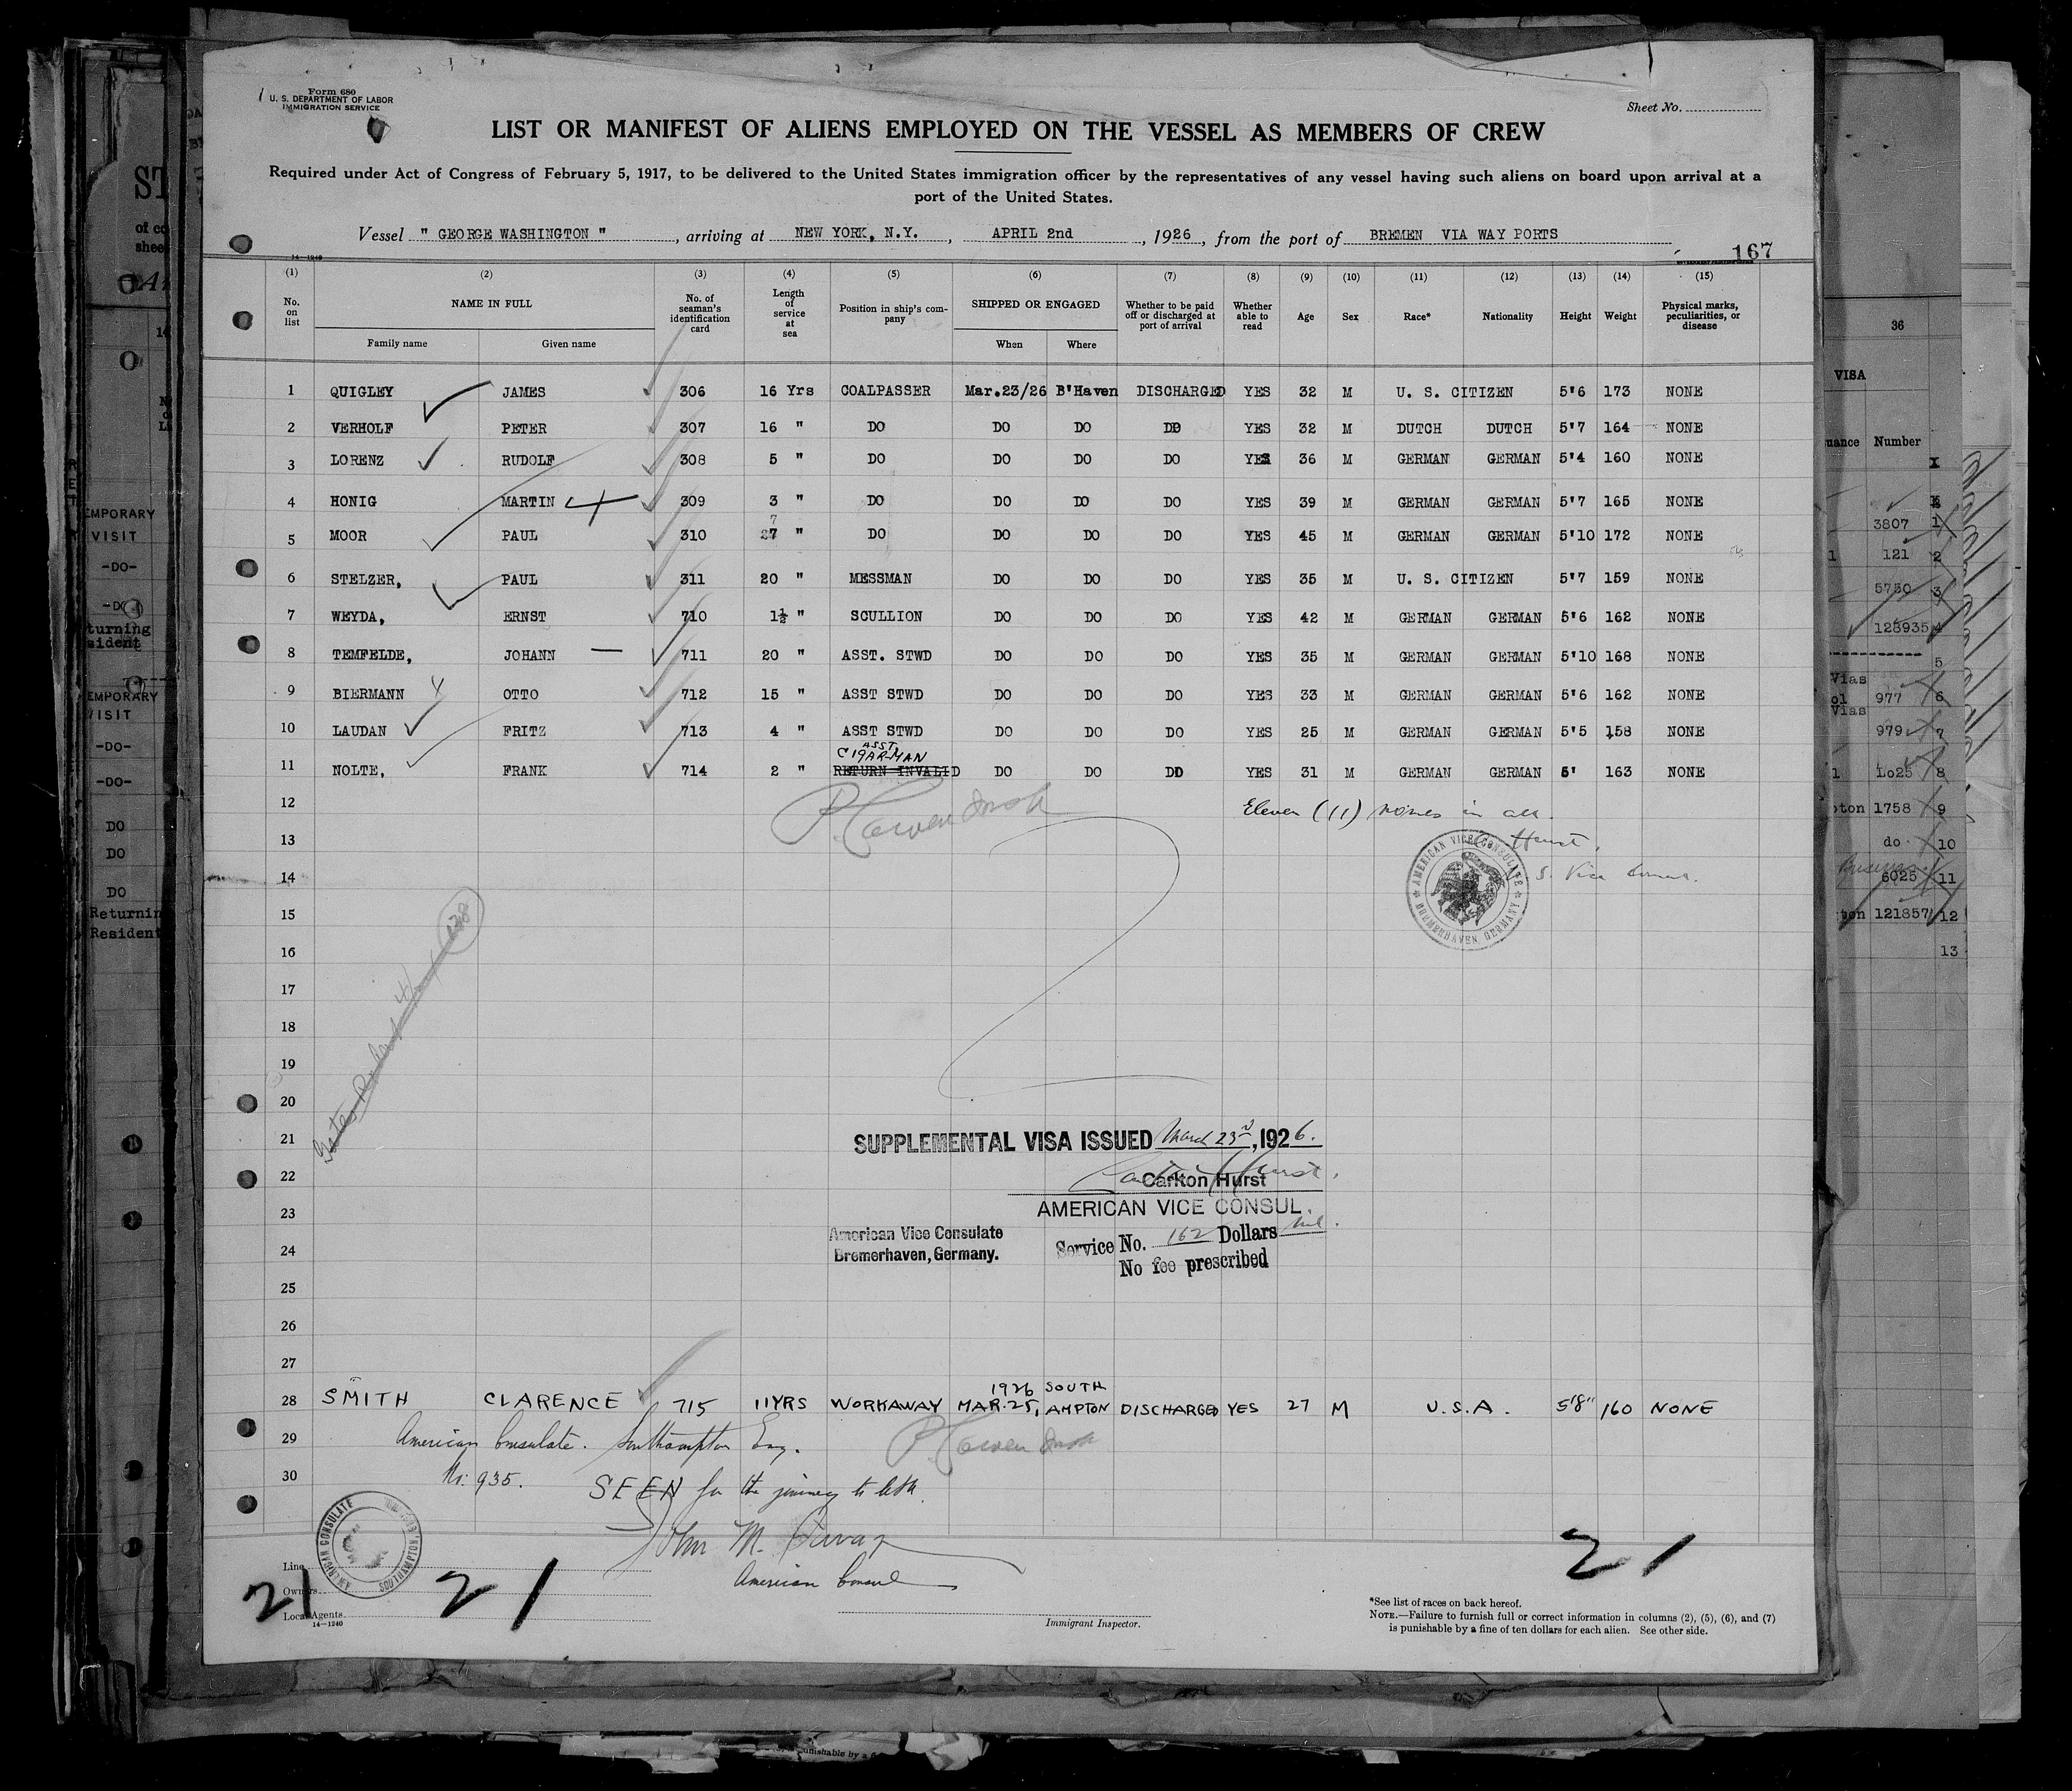 Form 680
U. S. DEPARTMENT OF LABOR
IMMIGRATION SERVICE
Sheet No.
LIST OR MANIFEST OF ALIENS EMPLOYED ON THE VESSEL AS MEMBERS OF CREW
Required under Act of Congress of February 5, 1917, to be delivered to the United States immigration officer by the representatives of any vessel having such aliens on board upon arrival at a
port of the United States.
Vessel " GEORGE WASHINGTON " , arriving at NEW YORK, N.Y. , APRIL 2nd , 1926 , from the port of BREMEN VIA WAY PORTS
167
14-1240
(1) (2) (3) (4) (5) (6) (7) (8) (9) (10) (11) (12) (13) (14) (15)
No. on list NAME IN FULL No. of seaman's identification card Length of service at sea Position in ship's company SHIPPED OR ENGAGED Whether to be paid off or discharged at port of arrival Whether able to read Age Sex Race* Nationality Height Weight Physical marks, peculiarities, or disease
Family name Given name When Where
1 QUIGLEY JAMES 306 16 Yrs COALPASSER Mar.23/26 B'Haven DISCHARGED YES 32 M U. S. CITIZEN 5'6 173 NONE
2 VERHOLF PETER 307 16 " DO DO DO DO YES 32 M DUTCH DUTCH 5'7 164 NONE
3 LORENZ RUDOLF 308 5 " DO DO DO DO YES 36 M GERMAN GERMAN 5'4 160 NONE
4 HONIG MARTIN 309 3 " DO DO DO DO YES 39 M GERMAN GERMAN 5'7 165 NONE
7
5 MOOR PAUL 310 27 " DO DO DO DO YES 45 M GERMAN GERMAN 5'10 172 NONE
6 STELZER, PAUL 311 20 " MESSMAN DO DO DO YES 35 M U. S. CITIZEN 5'7 159 NONE
7 WEYDA, ERNST 710 1½ " SCULLION DO DO DO YES 42 M GERMAN GERMAN 5'6 162 NONE
8 TEMFELDE, JOHANN 711 20 " ASST. STWD DO DO DO YES 35 M GERMAN GERMAN 5'10 168 NONE
9 BIERMANN OTTO 712 15 " ASST STWD DO DO DO YES 33 M GERMAN GERMAN 5'6 162 NONE
10 LAUDAN FRITZ 713 4 " ASST STWD DO DO DO YES 25 M GERMAN GERMAN 5'5 158 NONE
ASST
CIGARMAN
11 NOLTE, FRANK 714 2 " RETURN INVALID DO DO DO YES 31 M GERMAN GERMAN 5' 163 NONE
12 Eleven (11) names in all.
13 Hurst,
14 S. Vice Consul.
AMERICAN VICE CONSULATE BREMERHAVEN, GERMANY
15
16
17
18
19
20
21 SUPPLEMENTAL VISA ISSUED March 23rd, 1926.
22 Carlton Hurst
23 AMERICAN VICE CONSUL.
American Vice Consulate Service No. 162 Dollars nil.
24 Bremerhaven, Germany. No fee prescribed
25
26
27
1926 SOUTH
28 SMITH CLARENCE 715 11YRS WORKAWAY MAR.25, AMPTON DISCHARGED YES 27 M U.S.A. 5'8" 160 NONE
29 American Consulate. Southampton Eng.
30 No: 935. SEEN for the journey to
John M. Savage
American Consul
AMERICAN CONSULATE SOUTHAMPTON
Line
Owners
Local Agents
14-1240
21 21 21
Immigrant Inspector.
*See list of races on back hereof.
NOTE.—Failure to furnish full or correct information in columns (2), (5), (6), and (7)
is punishable by a fine of ten dollars for each alien. See other side.
EMPORARY
VISIT
-DO-
turning
sident
EMPORARY
VISIT
-DO-
-DO-
DO
DO
DO
Returnin
Resident
36
VISA
Number
3807 1
121 2
5750 3
128935 4
5
977 6
979 7
8
1758 9
do 10
6025 11
121857 12
13